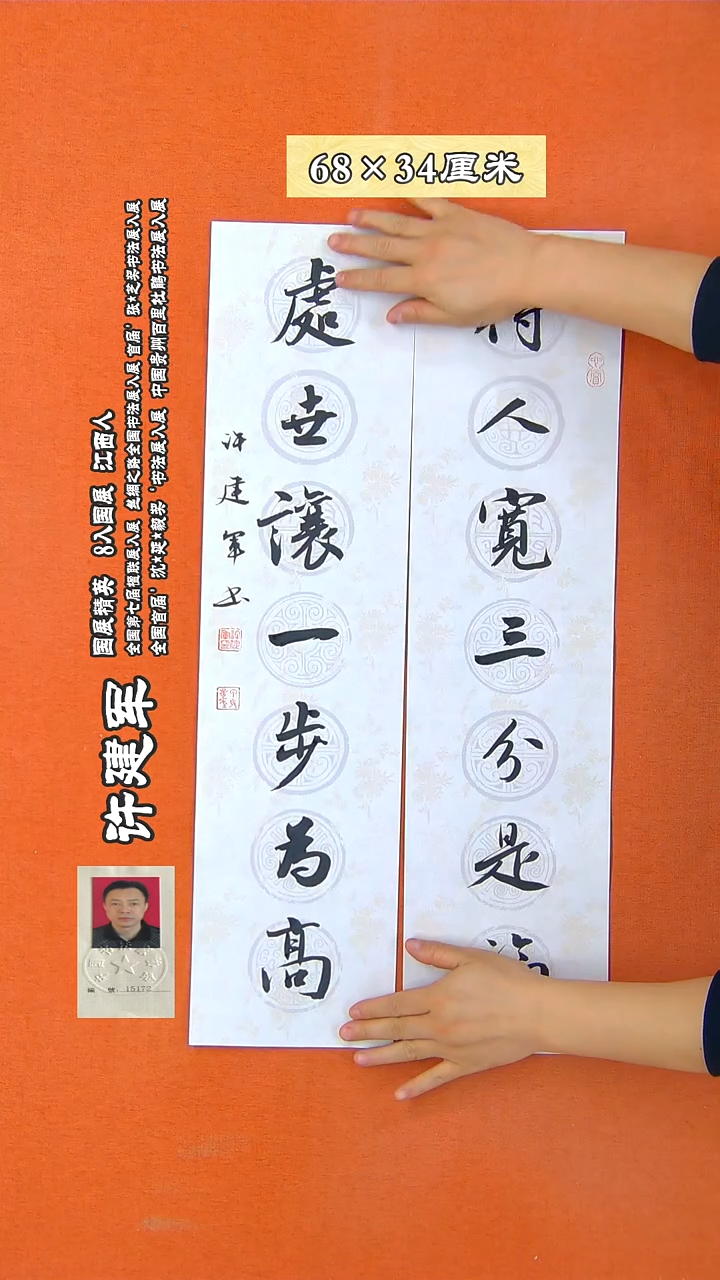 68×34厘米
待人寬三分是福
處世讓一步為高
许建军书
国展精英 8入国展 江西人
全国第七届楹联展入展 丝绸之路全国书法展入展 首届‘张★芝奖书法展入展
全国首届‘沈★延★毅奖‘书法展入展 中国贵州百里杜鹃书法展入展
许建军
15172